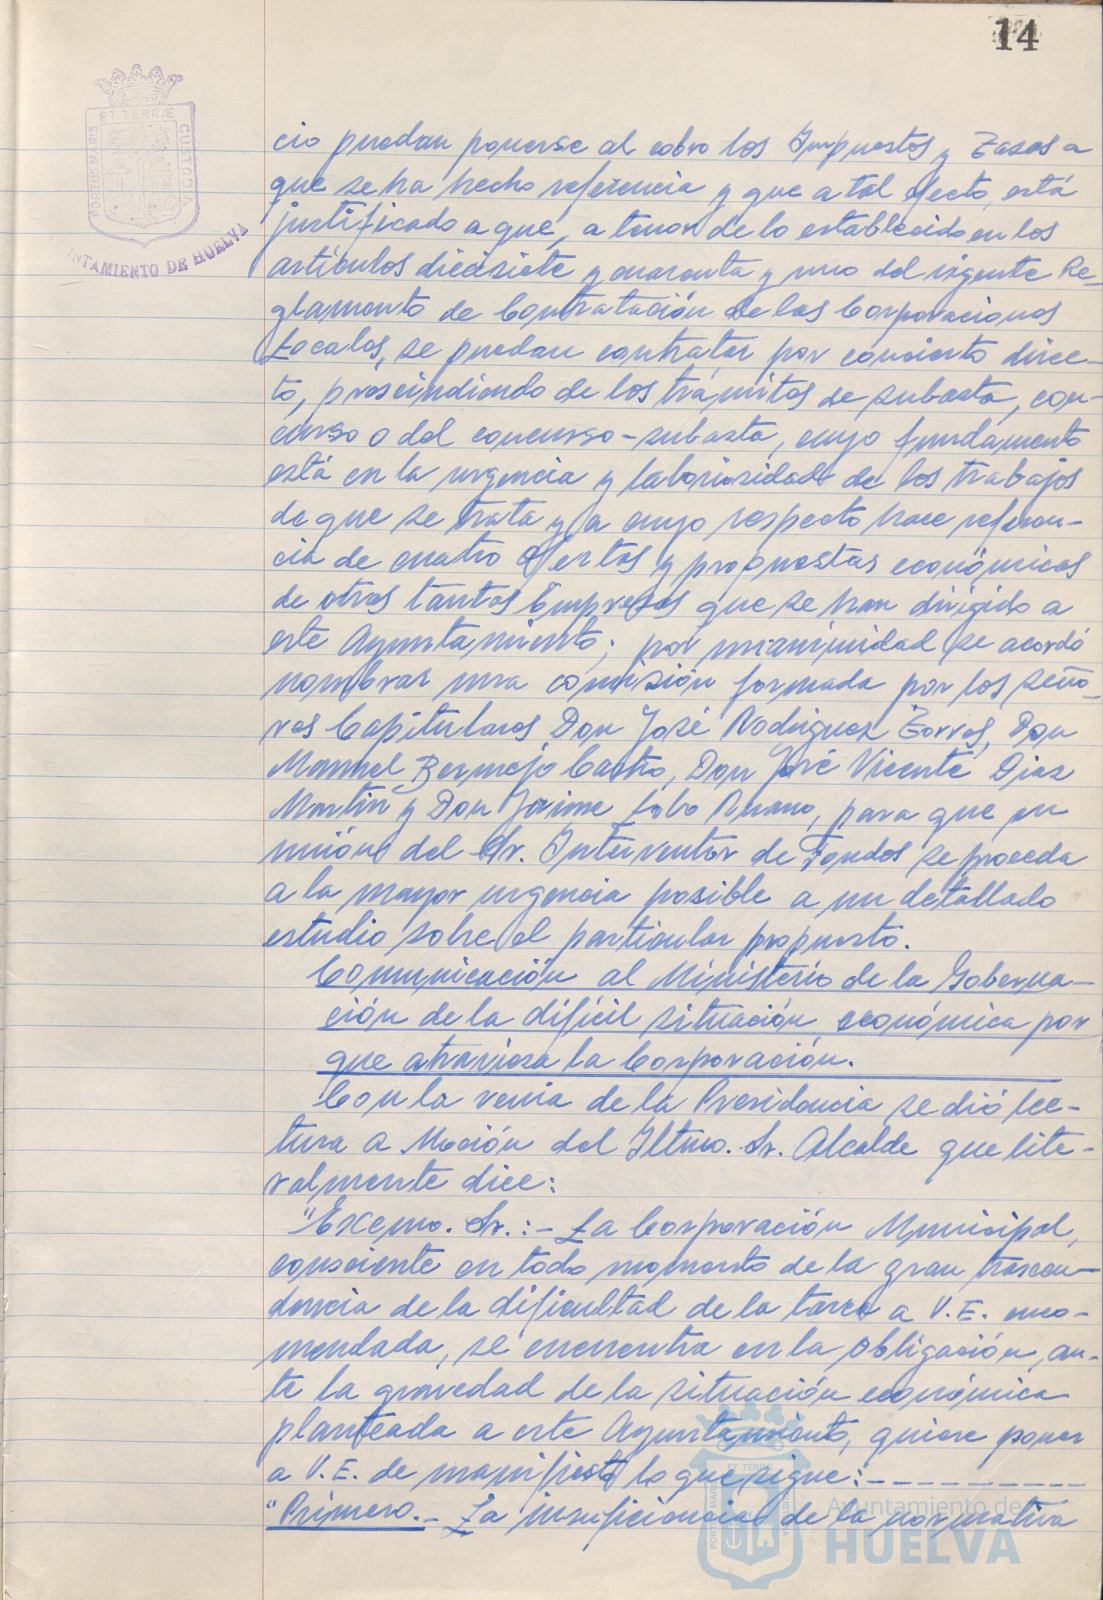 14
PORTUS MARIS ET TERRÆ CUSTODIA
AYUNTAMIENTO DE HUELVA
cio puedan ponerse al cobro los Impuestos y Tasas a
que se ha hecho referencia y que a tal efecto, está
justificado a que, a tenor de lo establecido en los
artículos diecisiete y cuarenta y uno del vigente Re-
glamento de Contratación de las Corporaciones
Locales, se puedan contratar por concierto direc-
to, prescindiendo de los trámites de subasta, con-
curso o del concurso-subasta, cuyo fundamento
está en la urgencia y laboriosidad de los trabajos
de que se trata y a cuyo respecto hace referen-
cia de cuatro ofertas y propuestas económicas
de otras tantas Empresas que se han dirigido a
este Ayuntamiento; por unanimidad se acordó
nombrar una comisión formada por los Seño-
res Capitulares Don José Rodríguez Torres, Don
Manuel Bermejo Castro, Don José Vicente Díaz
Martín y Don Jaime Lobo Ruano, para que en
unión del Sr. Interventor de Fondos se proceda
a la mayor urgencia posible a un detallado
estudio sobre el particular propuesto.
Comunicación al Ministerio de la Goberna-
ción de la difícil situación económica por
que atraviesa la Corporación.
Con la venia de la Presidencia se dió lec-
tura a Moción del Iltmo. Sr. Alcalde que lite-
ralmente dice:
"Excmo. Sr.:- La Corporación Municipal,
consciente en todo momento de la gran trascen-
dencia de la dificultad de la tarea a V.E. enco-
mendada, se encuentra en la obligación, an-
te la gravedad de la situación económica
planteada a este Ayuntamiento, quiere poner
a V.E. de manifiesto lo que sigue:----------
"Primero.- La insuficiencia de la normativa
Ayuntamiento de
HUELVA